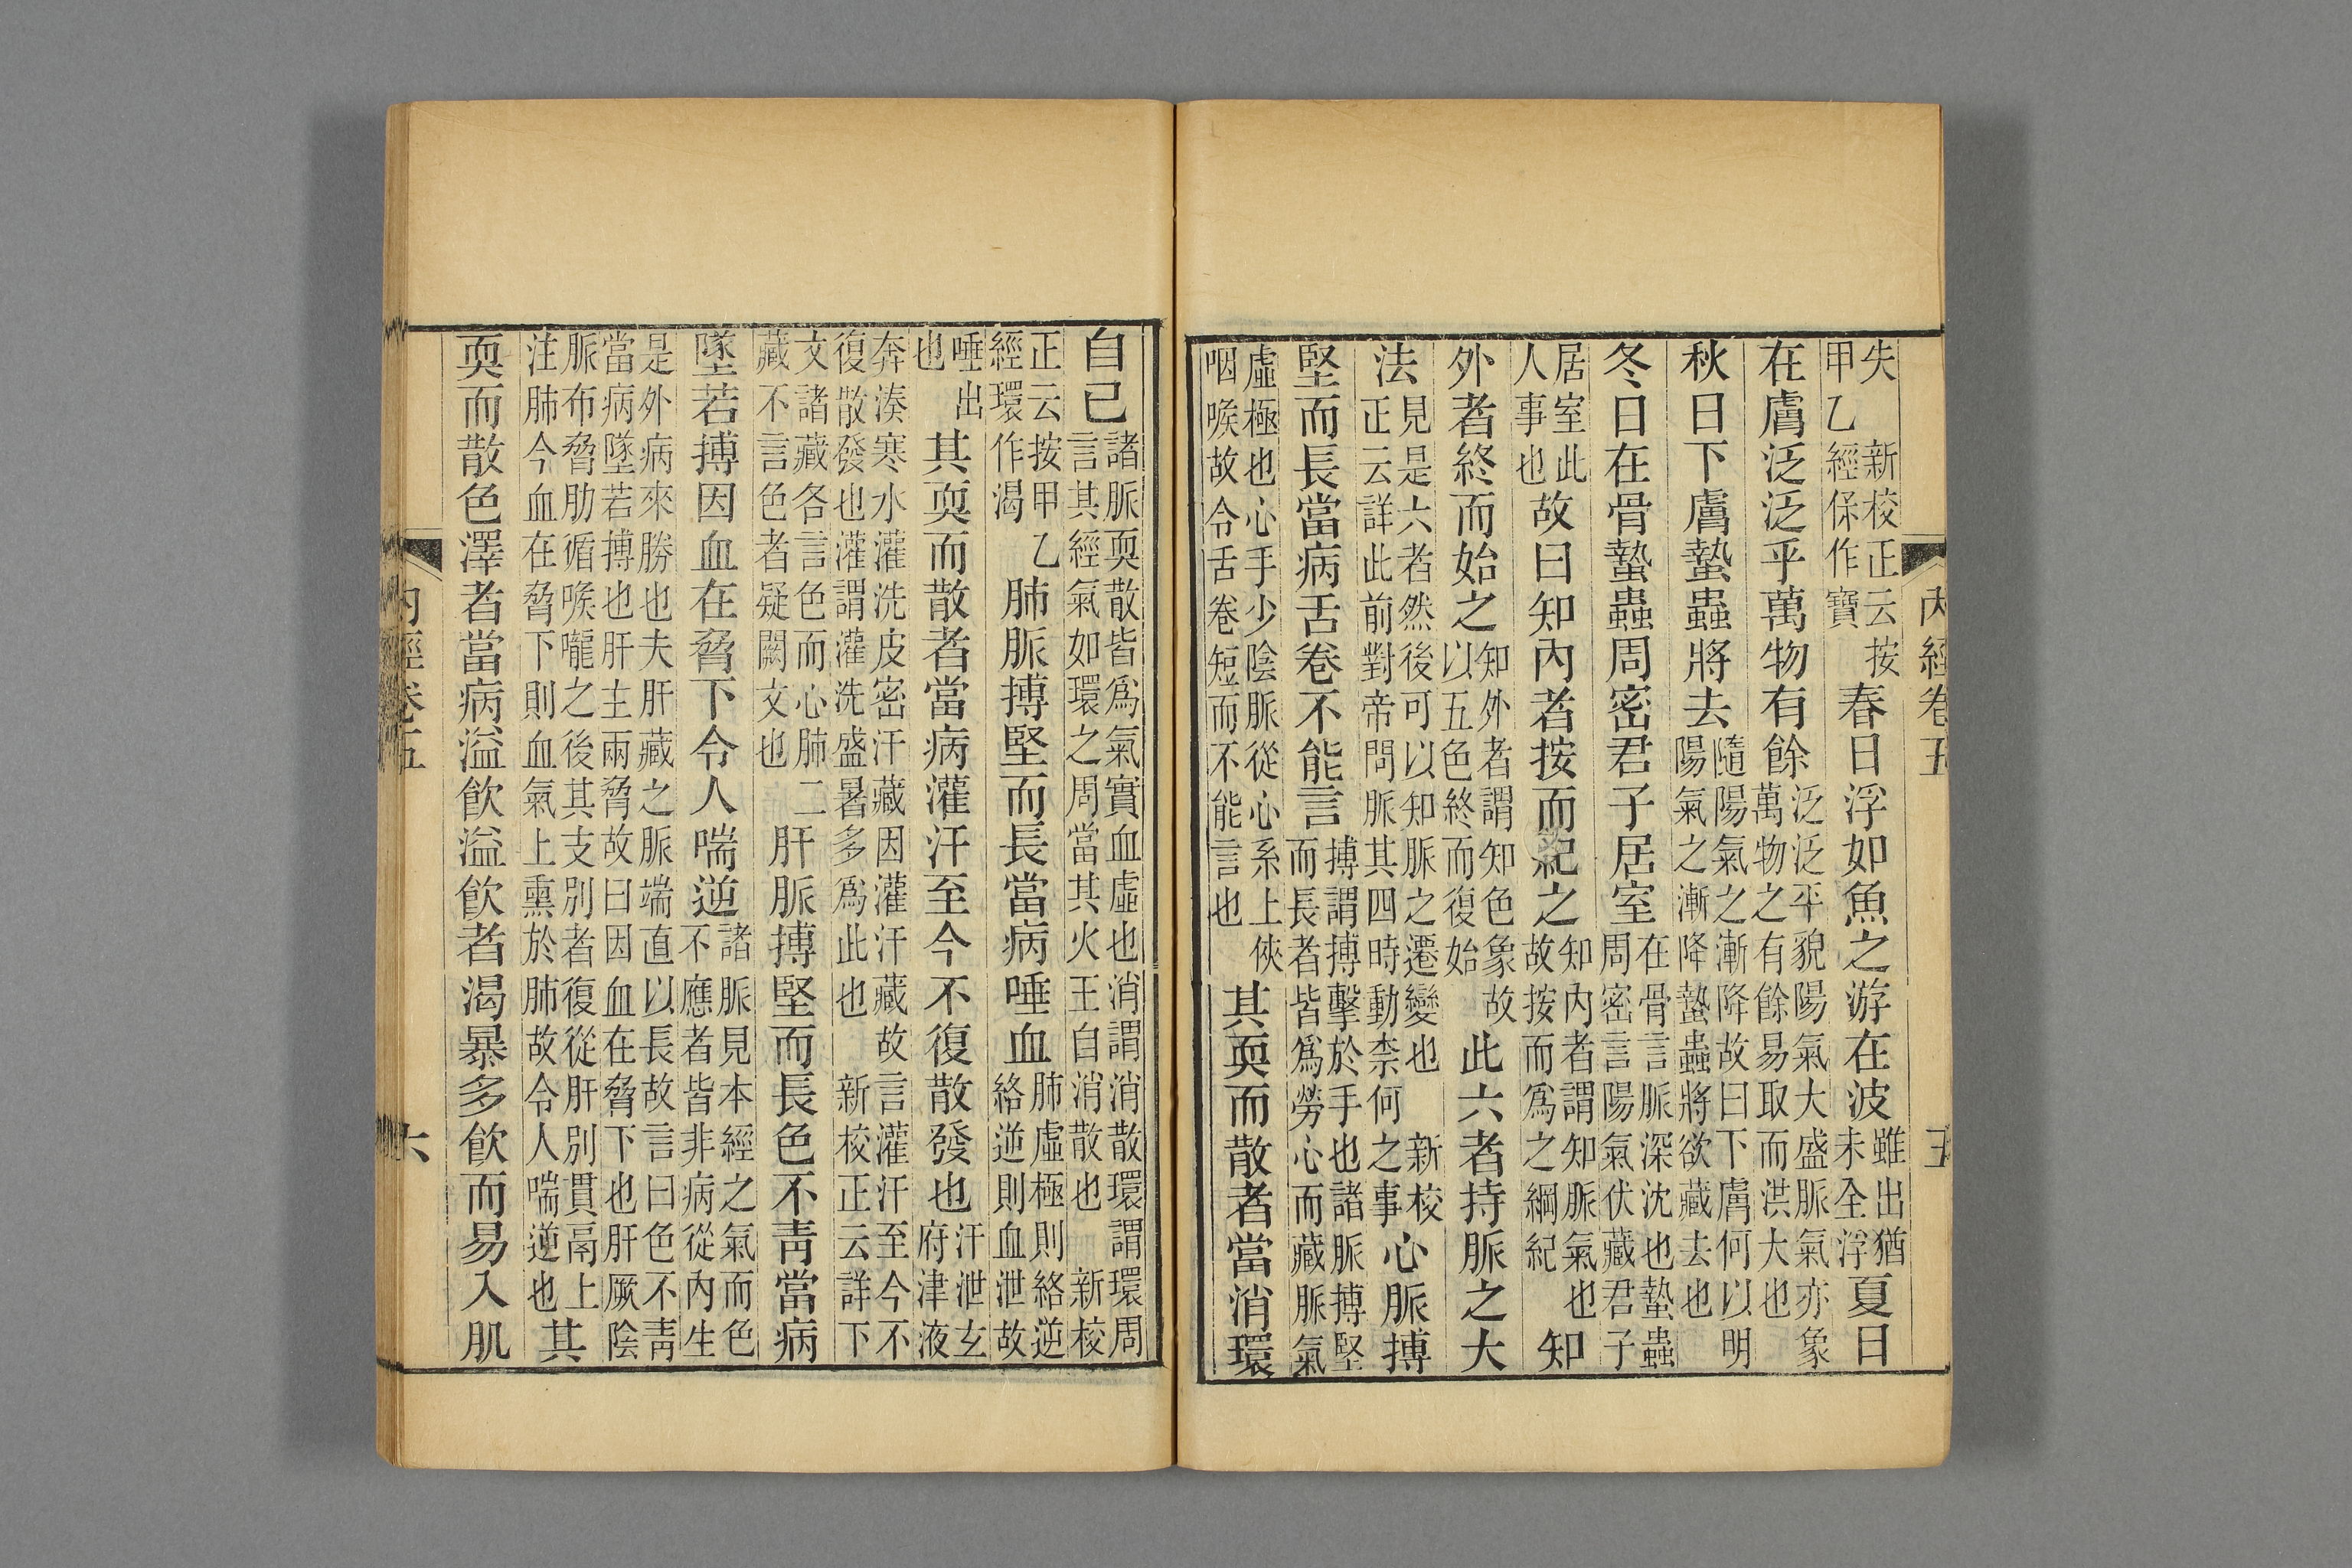 內經卷五 五
失 新校正云按甲乙經保作寶春日浮如魚之游在波雖出猶未全浮夏日
在膚泛泛乎萬物有餘泛泛平貌陽氣大盛脈氣亦象萬物之有餘易取而洪大也
秋日下膚蟄蟲將去隨陽氣之漸降故曰下膚何以明陽氣之漸降蟄蟲將欲藏去也
冬日在骨蟄蟲周密君子居室在骨言脈深沈也蟄蟲周密言陽氣伏藏君子
居室此人事也故曰知內者按而紀之知內者謂知脈氣也故按而爲之綱紀知
外者終而始之知外者謂知色象故以五色終而復始此六者持脈之大
法見是六者然後可以知脈之遷變也 新校正云詳此前對帝問脈其四時動柰何之事心脈搏
堅而長當病舌卷不能言搏謂搏擊於手也諸脈搏堅而長者皆爲勞心而藏脈氣
虛極也心手少陰脈從心系上俠咽喉故令舌卷短而不能言也其耎而散者當消環
自已諸脈耎散皆爲氣實血虛也消謂消散環謂環周言其經氣如環之周當其火王自消散也 新校
正云按甲乙經環作渴肺脈搏堅而長當病唾血肺虛極則絡逆絡逆則血泄故
唾出也其耎而散者當病灌汗至今不復散發也汗泄玄府津液
奔湊寒水灌洗皮密汗藏因灌汗藏故言灌汗至今不復散發也灌謂灌洗盛暑多爲此也 新校正云詳下
文諸藏各言色而心肺二藏不言色者疑闕文也肝脈搏堅而長色不青當病
墜若搏因血在脅下令人喘逆諸脈見本經之氣而色不應者皆非病從內生
是外病來勝也夫肝藏之脈端直以長故言曰色不青當病墜若搏也肝主兩脅故曰因血在脅下也肝厥陰
脈布脅肋循喉嚨之後其支別者復從肝別貫鬲上注肺今血在脅下則血氣上熏於肺故令人喘逆也其
耎而散色澤者當病溢飲溢飲者渴暴多飲而易入肌
內經卷五 六